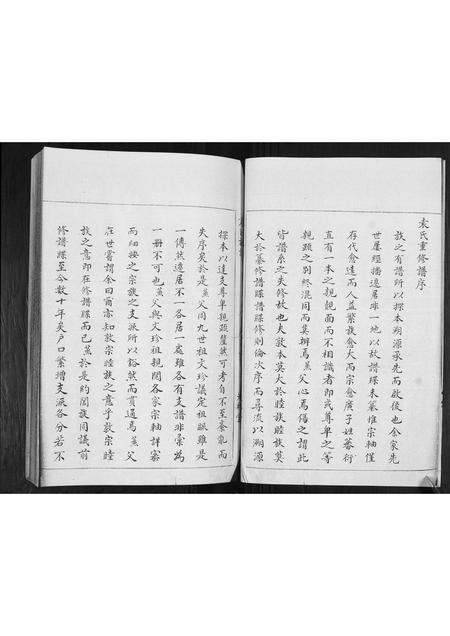 袁氏重修譜序
族之有譜所以探本朔源承先而啟後也余家先
世屢經播遷居非一地以故譜牒未纂惟宗軸僅
存代愈遠而人益繁族愈大而宗愈庶子姓蕃衍
直有一本之親覿面而不相識者即或尊卑之等
親疏之別終混同而莫辨焉蕉父心焉傷之謂此
皆譜系之失修故也夫敦本莫大於睦族睦族莫
大於纂修譜牒譜牒修則倫次序而尋流以溯源
探本以達支尊卑親疏釐然可考自不至紊亂而
失序矣於是蕉父同九世祖文珍議定祖派雖是
一傳然遷居不一各居一處雖各有支譜非彙為
一冊不可也蕉父與文珍祖親閱各家宗軸詳審
而細按之宗族之支派所以谿然而貫通焉蕉父
在世嘗謂余曰甭亦知敦宗睦族之意乎敦宗睦
族之意即在修譜牒而已蕉於是約闔族同議前
修譜牒至今數十年矣戶口繁增支派各分若不